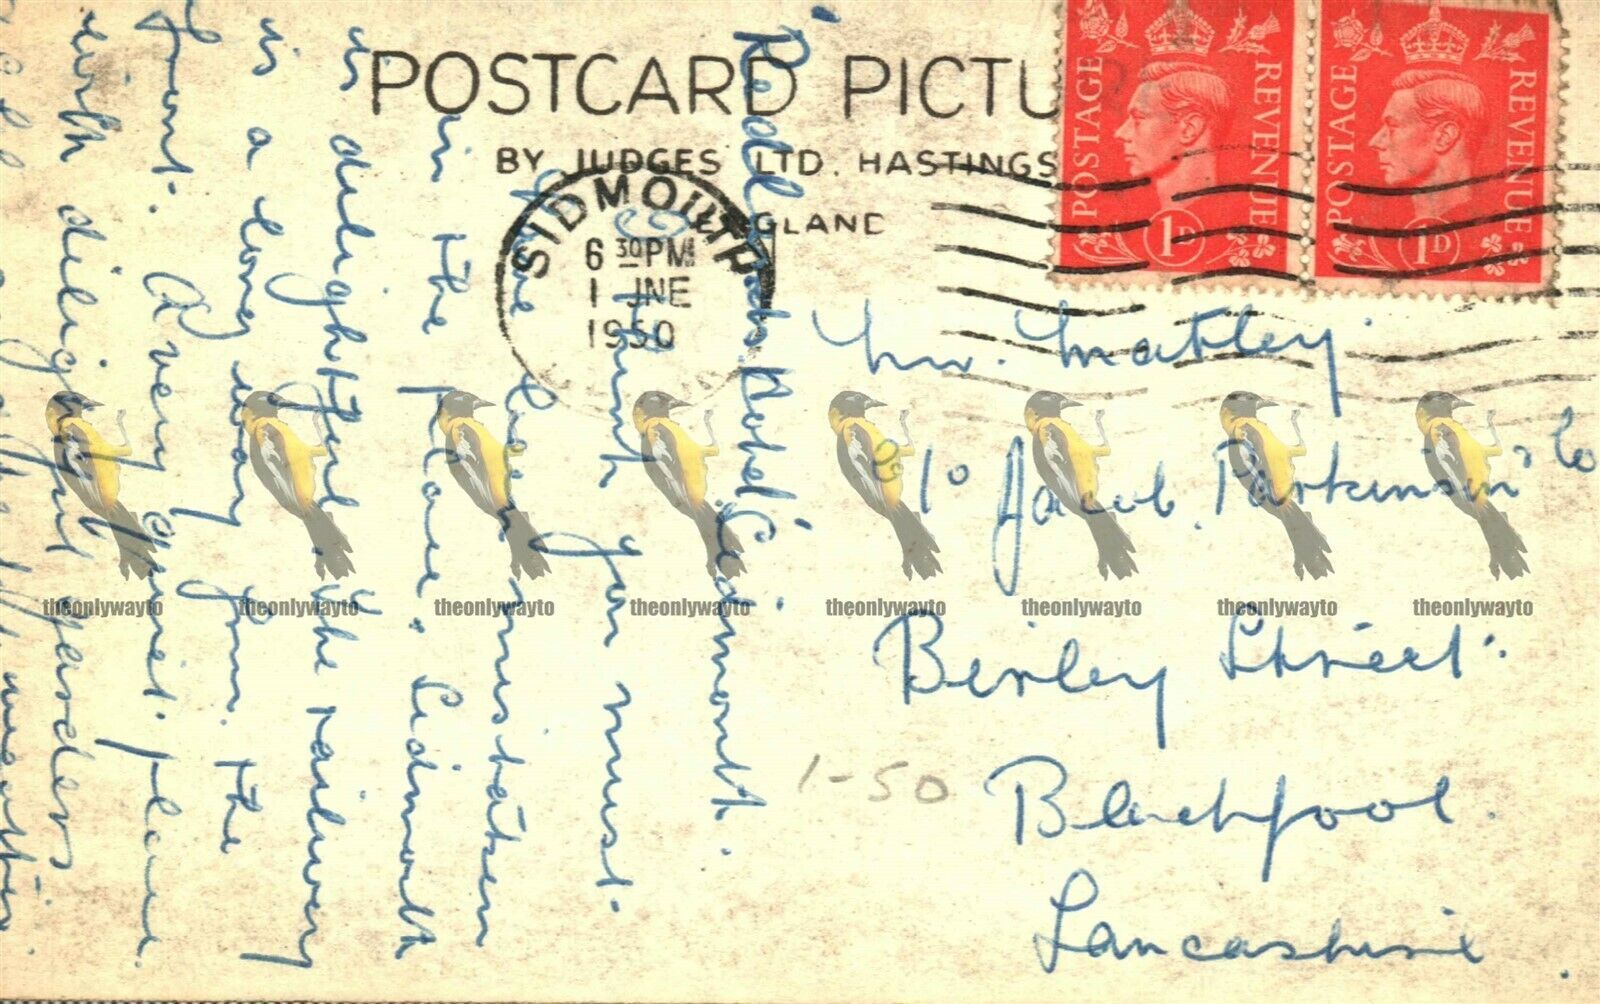 POSTCARD PICTU
BY JUDGES LTD. HASTINGS
GLAND
POSTAGE REVENUE
1D
POSTAGE REVENUE
1D
SIDMOUTH
6 30 PM
1 JNE
1950
Hotel Sidmouth.
I think you must
have been mistaken
in the place. Sidmouth
is delightful. The railway
is a long way from the
front. A very quiet place
with delightful gardens
Mr. Matley
c/o Jacob Parkinson & Co
Birley Street.
Blackpool.
Lancashire.
1-50
theonlywayto theonlywayto theonlywayto theonlywayto theonlywayto theonlywayto theonlywayto theonlywayto